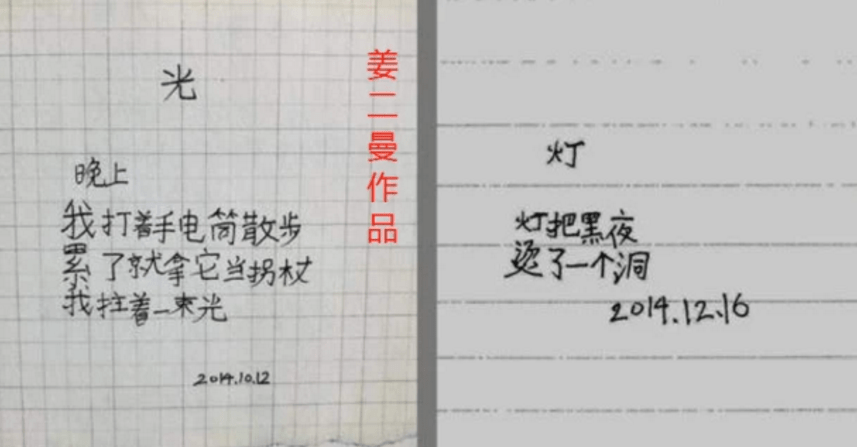 光
晚上
我打着手电筒散步
累了就拿它当拐杖
我拄着一束光
2014.10.12
姜二曼作品
灯
灯把黑夜
烫了一个洞
2014.12.16